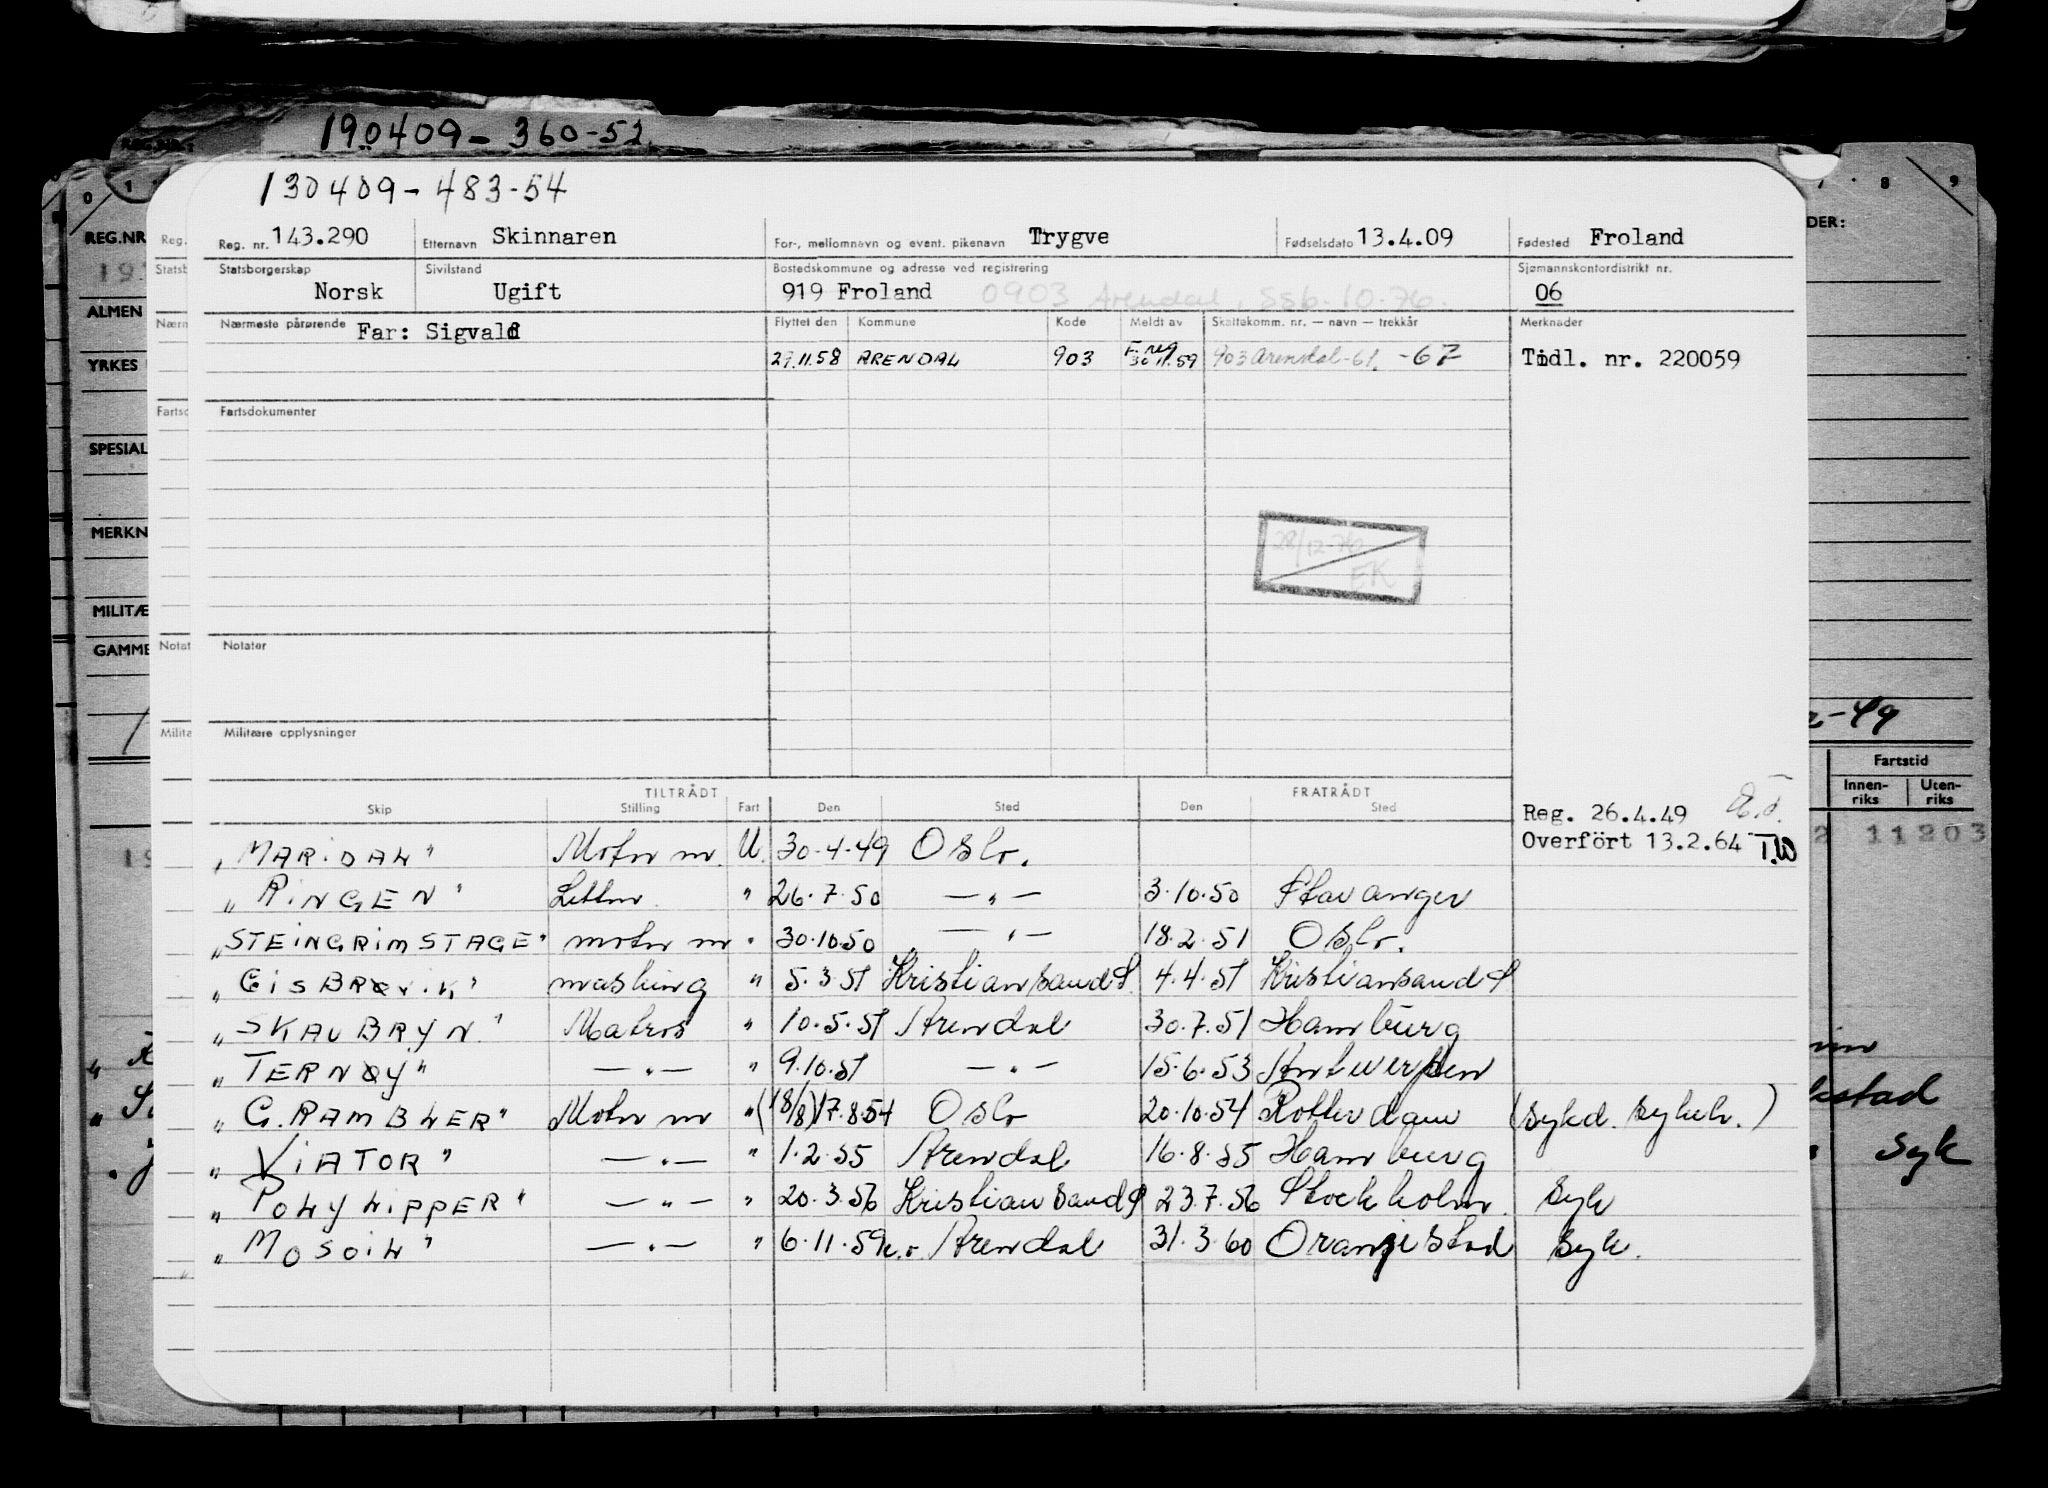 190409-360-52
130409-483-54
REG.NR Reg. nr. 143.290 Etternavn Skinnaren For-, mellomnavn og event. pikenavn Trygve Fødselsdato 13.4.09 Fødested Froland
Statsborgerskap Sivilstand Bostedskommune og adresse ved registrering Sjømannskontordistrikt nr.
Norsk Ugift 919 Froland 0903 Arendal, Ssb. 10-76. 06
ALMEN
Nærmeste pårørende Far: Sigvald Flyttet den Kommune Kode Meldt av Skattekomm. nr. — navn — trekkår Merknader
YRKES
29.11.58 ARENDAL 903 F.reg 30.11.59 903 Arendal-61. -67 Tidl. nr. 220059
Fartsdokumenter
SPESIAL
MERKN
28/12-76
EK
MILITÆ
GAMME
Notater
Militære opplysninger
-49
Fartstid
Innen-riks Uten-riks
TILTRÅDT FRATRÅDT
Skip Stilling Fart Den Sted Den Sted
Reg. 26.4.49
Overført 13.2.64 T.W
11203
"MARIDAL" Motor m. U. 30-4-49 Oslo.
"RINGEN" Lettm. " 26.7.50 —"— 3.10.50 Stavanger
"STEINGRIM STAGE" motor m " 30.10.50 —"— 18.2.51 Oslo.
"GISBRØVIK" masking " 5.3.51 Kristiansand S. 4.4.51 Kristiansand S
"SKAUBRYN" Matros " 10.5.51 Arendal 30.7.51 Hamburg
"TERNØY" —"— " 9.10.51 —"— 15.6.53 Antwerpen
"G. RAMBLER" Motor m " (18/8) 17.8.54 Oslo 20.10.54 Rotterdam (Sykd. sykeh.)
"VIATOR" —"— " 1.2.55 Arendal 16.8.55 Hamburg
syk
"POLYKLIPPER" —"— " 20.3.56 Kristiansand S 23.7.56 Stockholm. syk
"MOSOIL" —"— " 6.11.59 Arendal 31.3.60 Oranjestad syk.